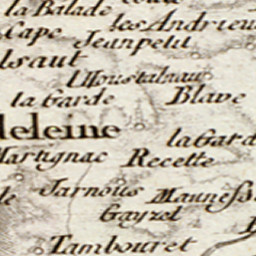 la Balade
les Andrieu
Cape
Jeanpetit
lsaut
L'Houstalnau
la Garde
Blave
leleine
la Gard
Martignac
Recette
Jarnoüs
Mauness
Gayzel
Tambouret